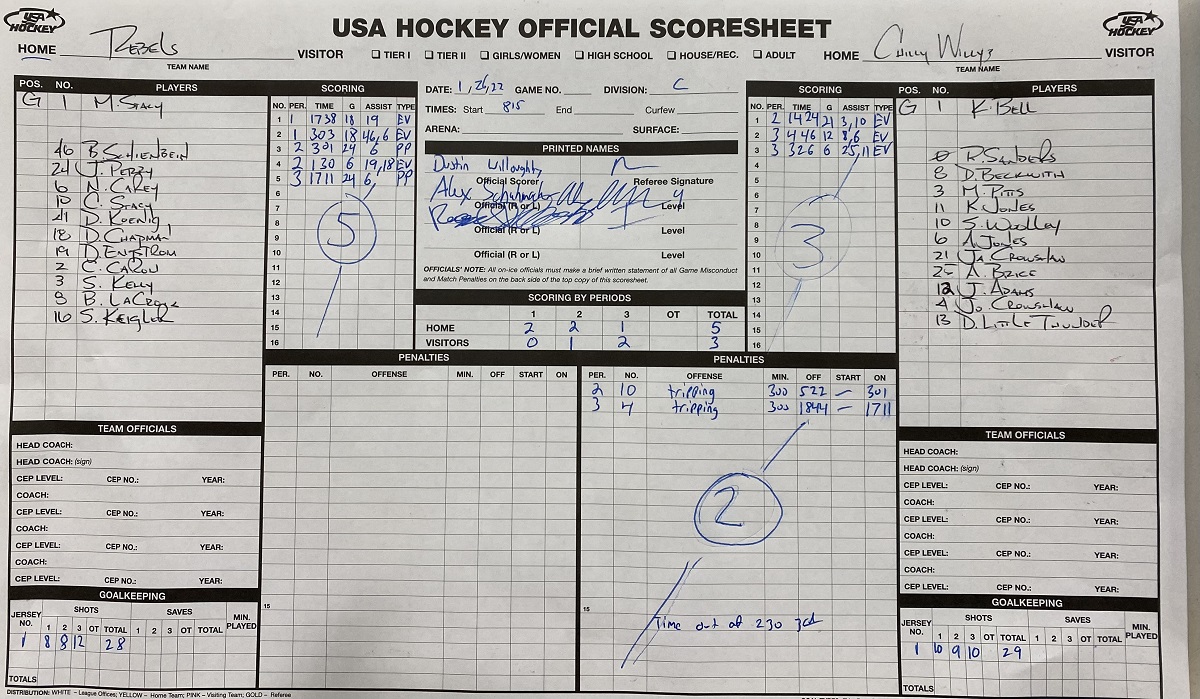 USA HOCKEY OFFICIAL SCORESHEET
USA HOCKEY
USA HOCKEY
HOME Rebels VISITOR
TEAM NAME
☐ TIER I ☐ TIER II ☐ GIRLS/WOMEN ☐ HIGH SCHOOL ☐ HOUSE/REC. ☐ ADULT
HOME Chilly Willys VISITOR
TEAM NAME
POS. NO. PLAYERS
G 1 M. Stacy
46 B. Schienbein
24 J. Perry
6 N. Carey
10 C. Stacy
41 D. Koenig
18 D. Chapman
19 D. Engstrom
2 C. Caron
3 S. Kelly
8 B. LaCrosse
16 S. Keigler
SCORING
NO. PER. TIME G ASSIST TYPE
1 1 1738 18 19 EV
2 1 303 18 46,6 EV
3 2 301 24 6 PP
4 2 130 6 19,18 EV
5 3 1711 24 6, PP
6
7
8
9
10
11
12
13
14
15
16
5
DATE: 1/26/22 GAME NO. DIVISION: C
TIMES: Start 815 End Curfew
ARENA: SURFACE:
PRINTED NAMES
Dustin Willoughby
Official Scorer Referee Signature
Alex
Official (R or L) Level 4
Official (R or L) Level
Official (R or L) Level
OFFICIALS' NOTE: All on-ice officials must make a brief written statement of all Game Misconduct
and Match Penalties on the back side of the top copy of this scoresheet.
SCORING BY PERIODS
1 2 3 OT TOTAL
HOME 2 2 1 5
VISITORS 0 1 2 3
SCORING
NO. PER. TIME G ASSIST TYPE
1 2 1424 21 3,10 EV
2 3 446 12 8,6 EV
3 3 326 6 25,11 EV
4
5
6
7
8
9
10
11
12
13
14
15
16
3
POS. NO. PLAYERS
G 1 K. Bell
0 R. Sanders
8 D. Beckwith
3 M. Pitts
11 K. Jones
10 S. Woolley
6 A. Jones
21 Ja. Crowshaw
25 A. Brice
12 J. Adams
4 Jo. Crowshaw
13 D. Little Thunder
PENALTIES
PER. NO. OFFENSE MIN. OFF START ON
15
PENALTIES
PER. NO. OFFENSE MIN. OFF START ON
2 10 tripping 300 522 — 301
3 4 tripping 300 1844 — 1711
2
15
Time out at 230 3rd
TEAM OFFICIALS
HEAD COACH:
HEAD COACH: (sign)
CEP LEVEL: CEP NO.: YEAR:
COACH:
CEP LEVEL: CEP NO.: YEAR:
COACH:
CEP LEVEL: CEP NO.: YEAR:
COACH:
CEP LEVEL: CEP NO.: YEAR:
GOALKEEPING
JERSEY NO. SHOTS SAVES MIN. PLAYED
1 2 3 OT TOTAL 1 2 3 OT TOTAL
1 8 8 12 28
TOTALS
TEAM OFFICIALS
HEAD COACH:
HEAD COACH: (sign)
CEP LEVEL: CEP NO.: YEAR:
COACH:
CEP LEVEL: CEP NO.: YEAR:
COACH:
CEP LEVEL: CEP NO.: YEAR:
COACH:
CEP LEVEL: CEP NO.: YEAR:
GOALKEEPING
JERSEY NO. SHOTS SAVES MIN. PLAYED
1 2 3 OT TOTAL 1 2 3 OT TOTAL
1 10 9 10 29
TOTALS
DISTRIBUTION: WHITE – League Offices; YELLOW – Home Team; PINK – Visiting Team; GOLD – Referee